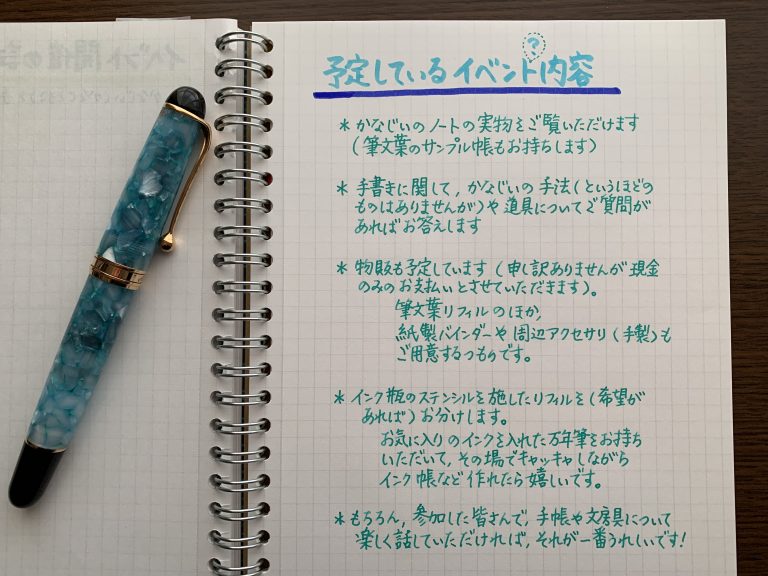 ?
予定しているイベント内容
* かなじいのノートの実物をご覧いただけます
(筆文葉のサンプル帳もお持ちします)
* 手書きに関して, かなじいの手法(というほどの
ものはありませんが)や道具についてご質問が
あればお答えします
* 物販も予定しています (申し訳ありませんが現金
のみのお支払いとさせていただきます)。
筆文葉リフィルのほか,
紙製バインダーや周辺アクセサリ(手製)も
ご用意するつもりです。
* インク瓶のステンシルを施したリフィルを(希望が
あれば)お分けします。
お気に入りのインクを入れた万年筆をお持ち
いただいて, その場でキャッキャしながら
インク帳など作れたら嬉しいです。
* もちろん, 参加した皆さんで, 手帳や文房具について
楽しく話していただければ, それが一番うれしいです!